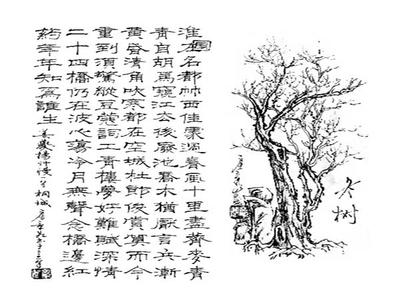 淮左名都竹西佳處過春風十里盡薺麥青
青自胡馬窺江去後廢池喬木猶厭言兵漸
黃昏清角吹寒都在空城杜郎俊賞算而今
重到須驚縱豆蔻詞工青樓夢好難賦深情
二十四橋仍在波心蕩冷月無聲念橋邊紅
葯年年知爲誰生
姜夔揚州慢 桐城
树